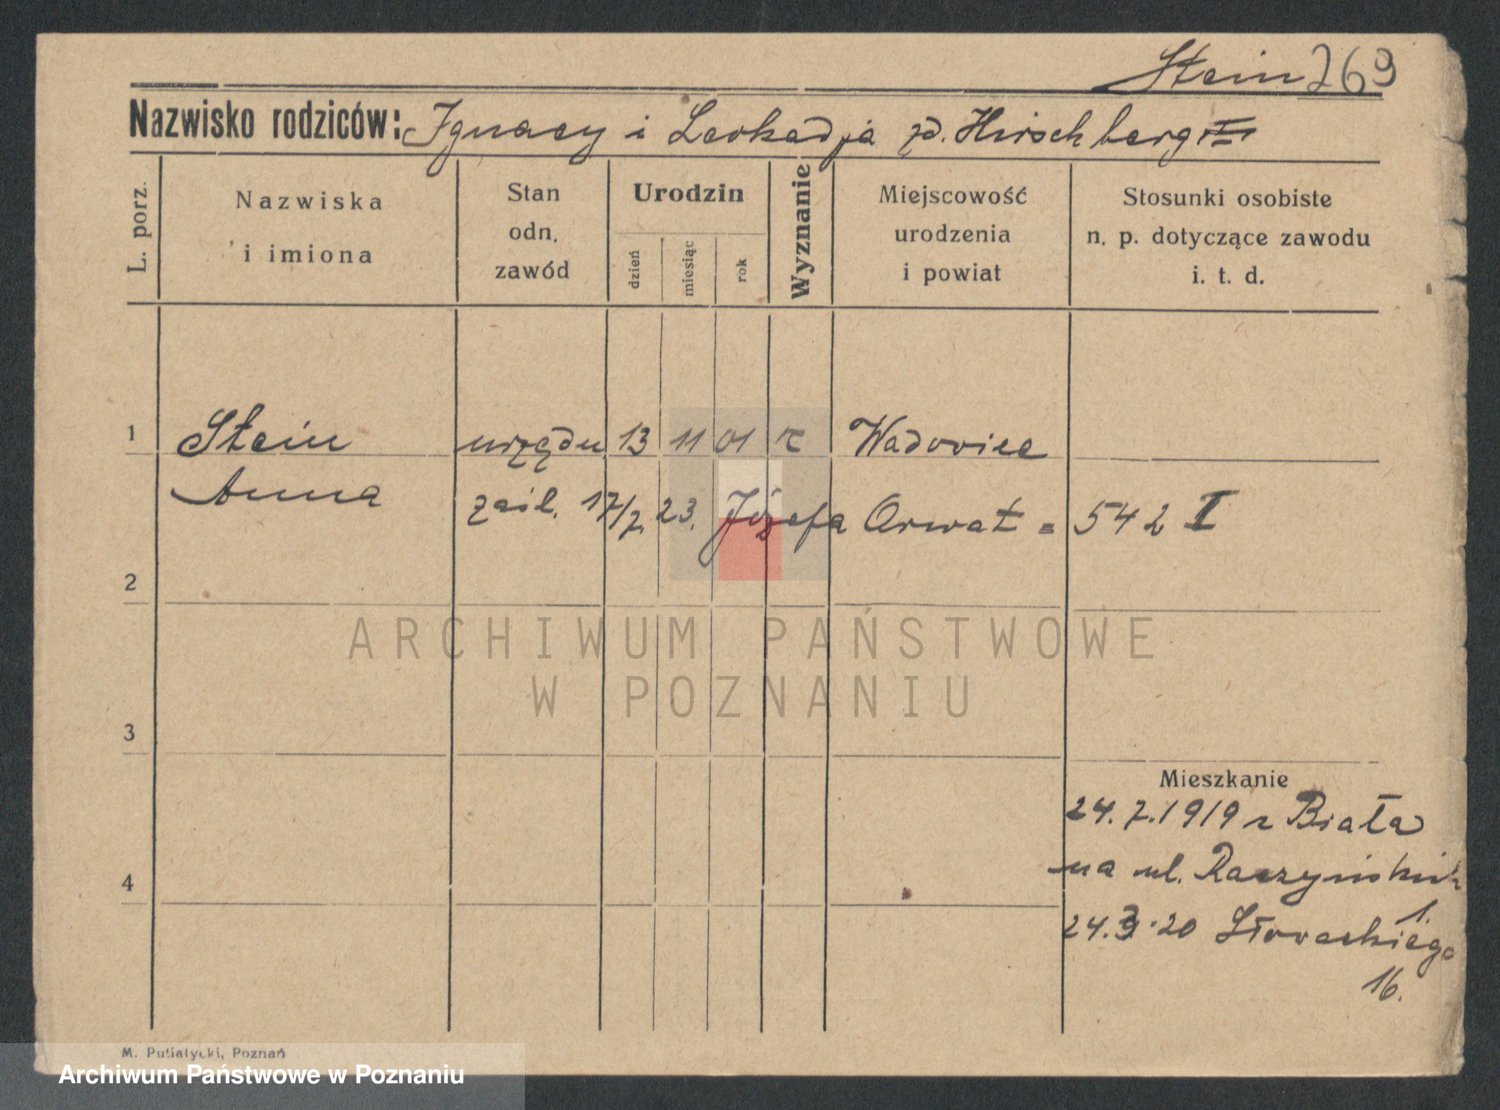 Stein 269
Nazwisko rodziców: Ignacy i Leokadja zd. Hirschberg
L. porz.
Nazwiska
i imiona
Stan
odn.
zawód
Urodzin
dzień
miesiąc
rok
Wyznanie
Miejscowość
urodzenia
i powiat
Stosunki osobiste
n. p. dotyczące zawodu
i. t. d.
1 Stein urzędn 13 11 01 r Wadowice
Anna zaśl. 17/7. 23. Józefa Orwat = 542 I
2
3
4
Mieszkanie
24.7.1919 z Biała
na ul. Raczyńskich
1.
24.3.20 Słowackiego
16.
M. Putiatycki, Poznań
ARCHIWUM PAŃSTWOWE
W POZNANIU
Archiwum Państwowe w Poznaniu